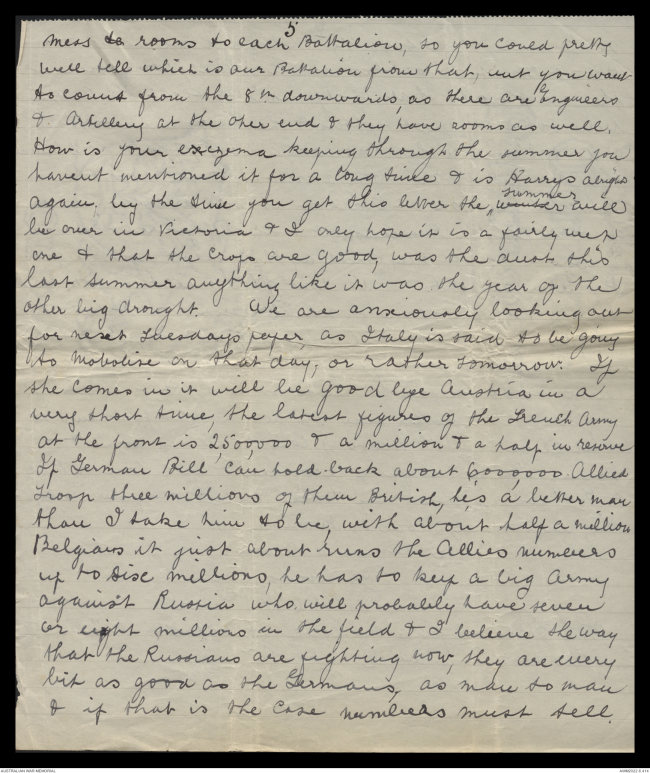 5
mess to rooms to each Battalion, so you could pretty
well tell which is our Battalion from that, but you want
to count from the 8th downwards, as there are Engineers
& Artillery at the other end & they have rooms as well.
How is your exczema keeping through the summer you
havent mentioned it for a long time & is Harrys alright
again, by the time you get this letter the summer winter will
be over in Victoria & I only hope it is a fairly wet
one & that the crops are good, was the dust this
last summer anything like it was the year of the
other big drought. We are anxiously looking out
for next Tuesdays paper, as Italy is said to be going
to mobolise on that day, or rather tomorrow. If
she comes in it will be good bye Austria in a
very short time, the latest figures of the French Army
at the front is 2,500,000 & a million & a half in reserve
If German Bill can hold back about 6,000,000 Allied
Troops three millions of them British, he's a better man
than I take him to be, with about half a million
Belgians it just about runs the Allies numbers
up to six millions, he has to keep a big Army
against Russia who will probably have seven
or eight millions in the field & I believe the way
that the Russians are fighting now, they are every
bit as good as the Germans, as man to man
& if that is the case numbers must tell.
AUSTRALIAN WAR MEMORIAL